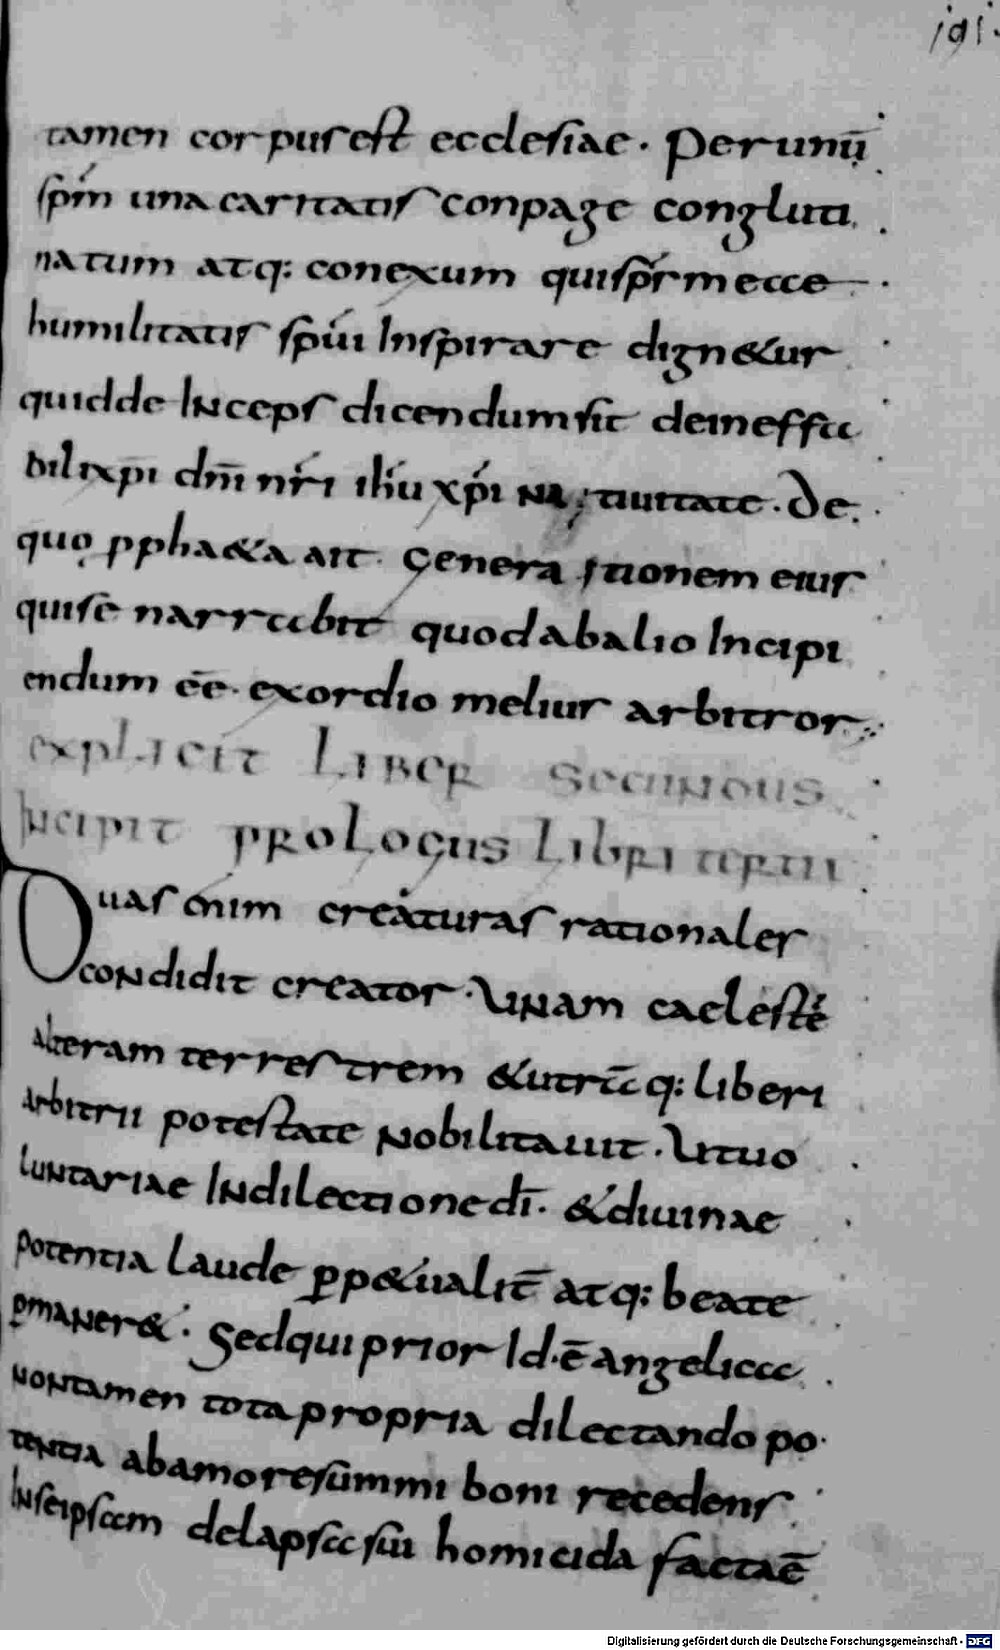 191.
tamen corpus est ecclesiae. Per unū
spm̄ una caritatis conpage congluti
natum atq: conexum qui spr̄ m ecce
humilitatis spūi Inspirare dign&ur
quidde Inceps dicendum sit de ineffa
bili xp̄i dn̄i nr̄i ih̄u xp̄i natiuitate. De
quo ppha&a ait. Generationem eius
quis enarrabit quod ab alio Incipi
endum eē. exordio melius arbitror.
explicit Liber Secundus
Incipit prologus Libri tertii
Duas enim creaturas rationales
condidit creator. Unam caelestē
alteram terrestrem & utrāq: liberi
arbitrii potestate nobilitauit. Ut uo
luntariae In dilectione dī. & diuinae
potentia laude pp&ualit̄ atq: beate
pmaner&. Sed qui prior Id.ē angelica
non tamen tota propria dilectando po.
tentia ab amore summi boni recedens
In se ipsam delapsa sui homicida factaē
Digitalisierung gefördert durch die Deutsche Forschungsgemeinschaft - DFG